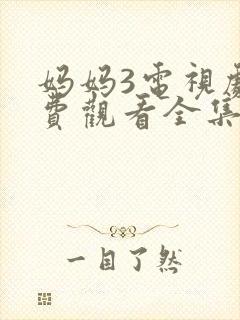 妈妈3電視劇
費觀看全集
一目了然